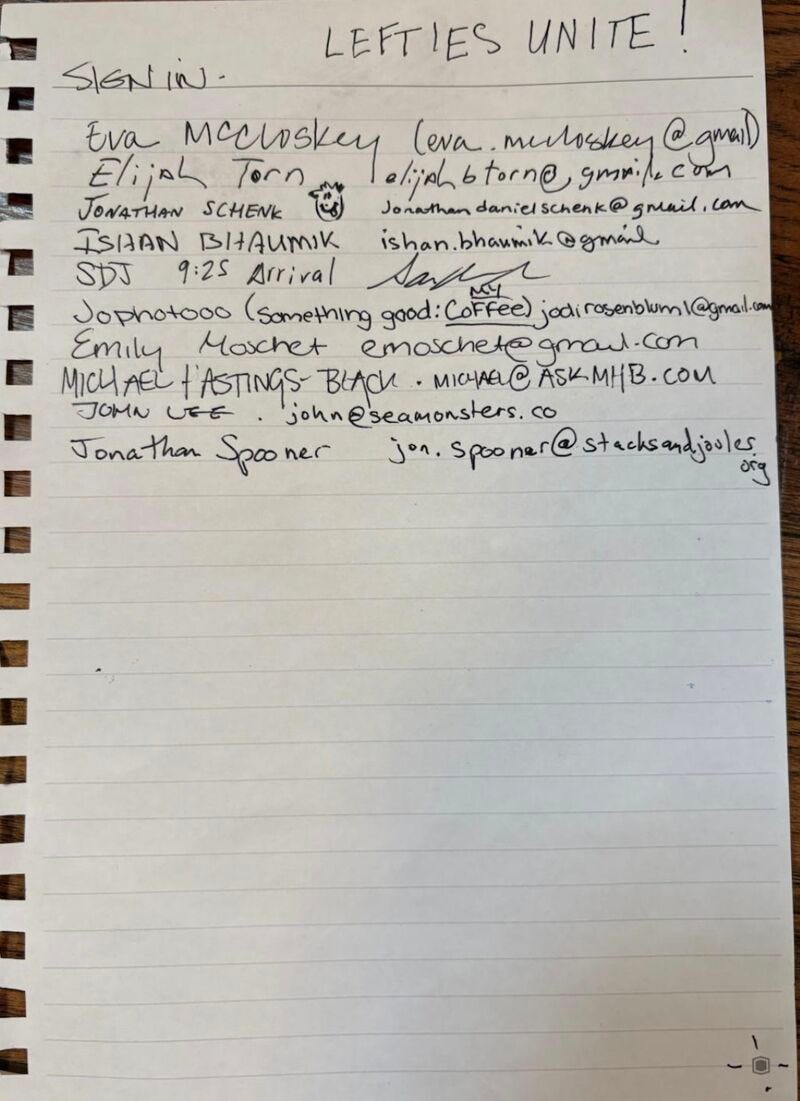 LEFTIES UNITE!
SIGN IN.
Eva McCloskey (eva.mccloskey@gmail)
Elijah Torn elijahbtorn@gmail.com
JONATHAN SCHENK jonathandanielschenk@gmail.com
ISHAN BHAUMIK ishan.bhaumik@gmail
SDJ 9:25 Arrival
Jophotooo (something good: NY Coffee) jodirosenblum1@gmail.com
Emily Moschet emoschet@gmail.com
MICHAEL HASTINGS-BLACK . MICHAEL@ASKMHB.COM
JOHN LEE . john@seamonsters.co
Jonathan Spooner jon.spooner@stacksandjoules.
org